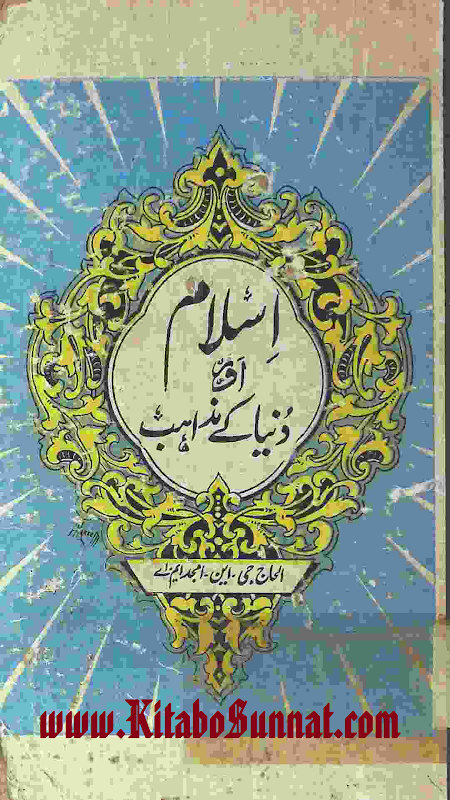 اِسلام
اور
دُنیا کے مذاہب
الحاج جی ۔ این ۔ امجد ایم ۔ اے
www.KitaboSunnat.com